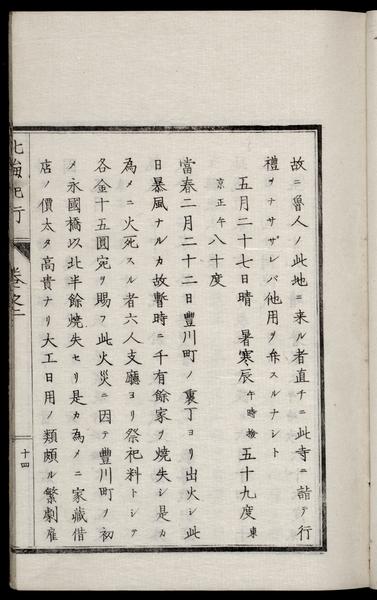 故ニ魯人ノ此地ニ来ル者直チニ此寺ニ詣テ行
禮ヲナサザレバ他用ヲ弁スルナシト
五月二十七日晴　暑寒辰午時檢五十九度東
京正午八十度
當春二月二十二日豐川町ノ裏丁ヨリ出火シ此
日暴風ナルカ故暫時ニ千有餘家ヲ燒失シ是カ
為メニ火死スル者六人支廳ヨリ祭祀料トシテ
各金十五圓宛ヲ賜フ此火災ニ因テ豐川町ヲ初
メ永國橋以北半餘燒失セリ是カ為メニ家藏借
店ノ價太タ高貴ナリ大工日用ノ類頗ル繁劇雇
北海紀行
卷之二
十四